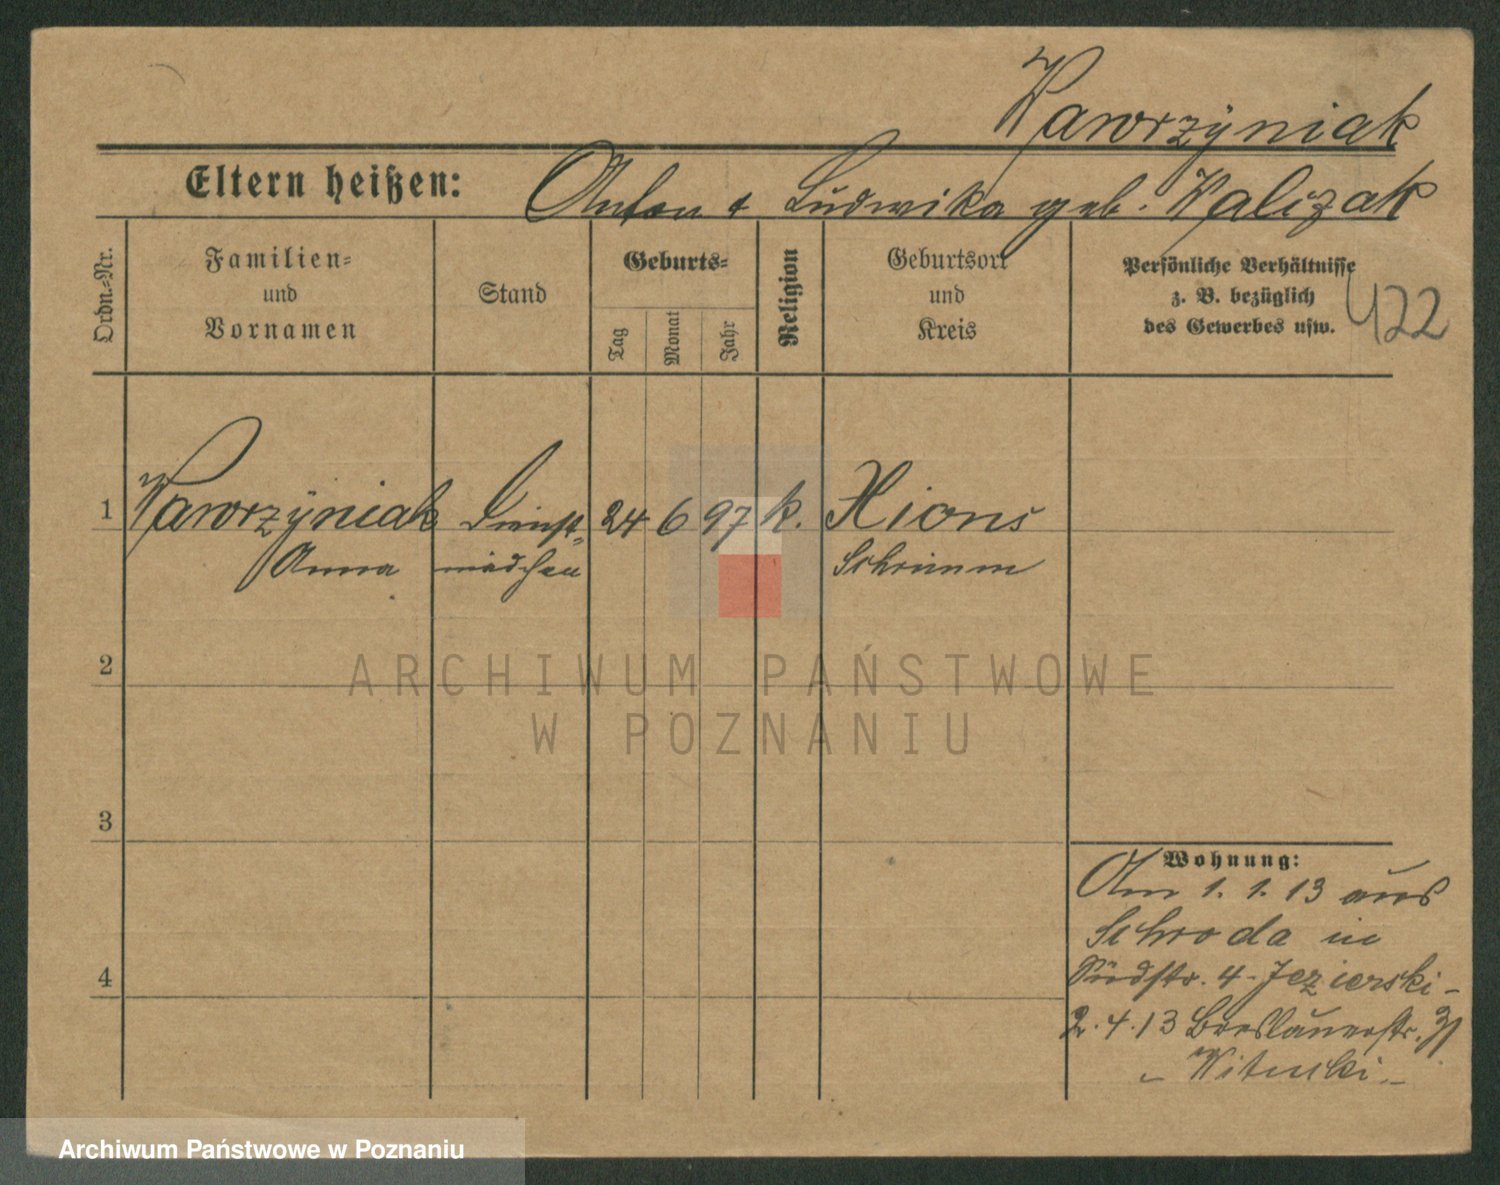 Wawrzÿniak
Eltern heißen: Anton & Ludwika geb. Walczak
Ordn.-Nr.
Familien-
und
Vornamen
Stand
Geburts-
Tag
Monat
Jahr
Religion
Geburtsort
und
Kreis
Persönliche Verhältnisse
z. B. bezüglich
des Gewerbes usw.
422
1 Wawrzÿniak Dienst- 24 6 97 k. Xions
Anna mädchen Schrimm
2
3
4
Wohnung:
Am 1. 1. 13 aus
Schroda in
Südstr. 4 - Jezierski -
2. 4. 13 Breslauerstr. 31
ARCHIWUM PAŃSTWOWE
W POZNANIU
Archiwum Państwowe w Poznaniu